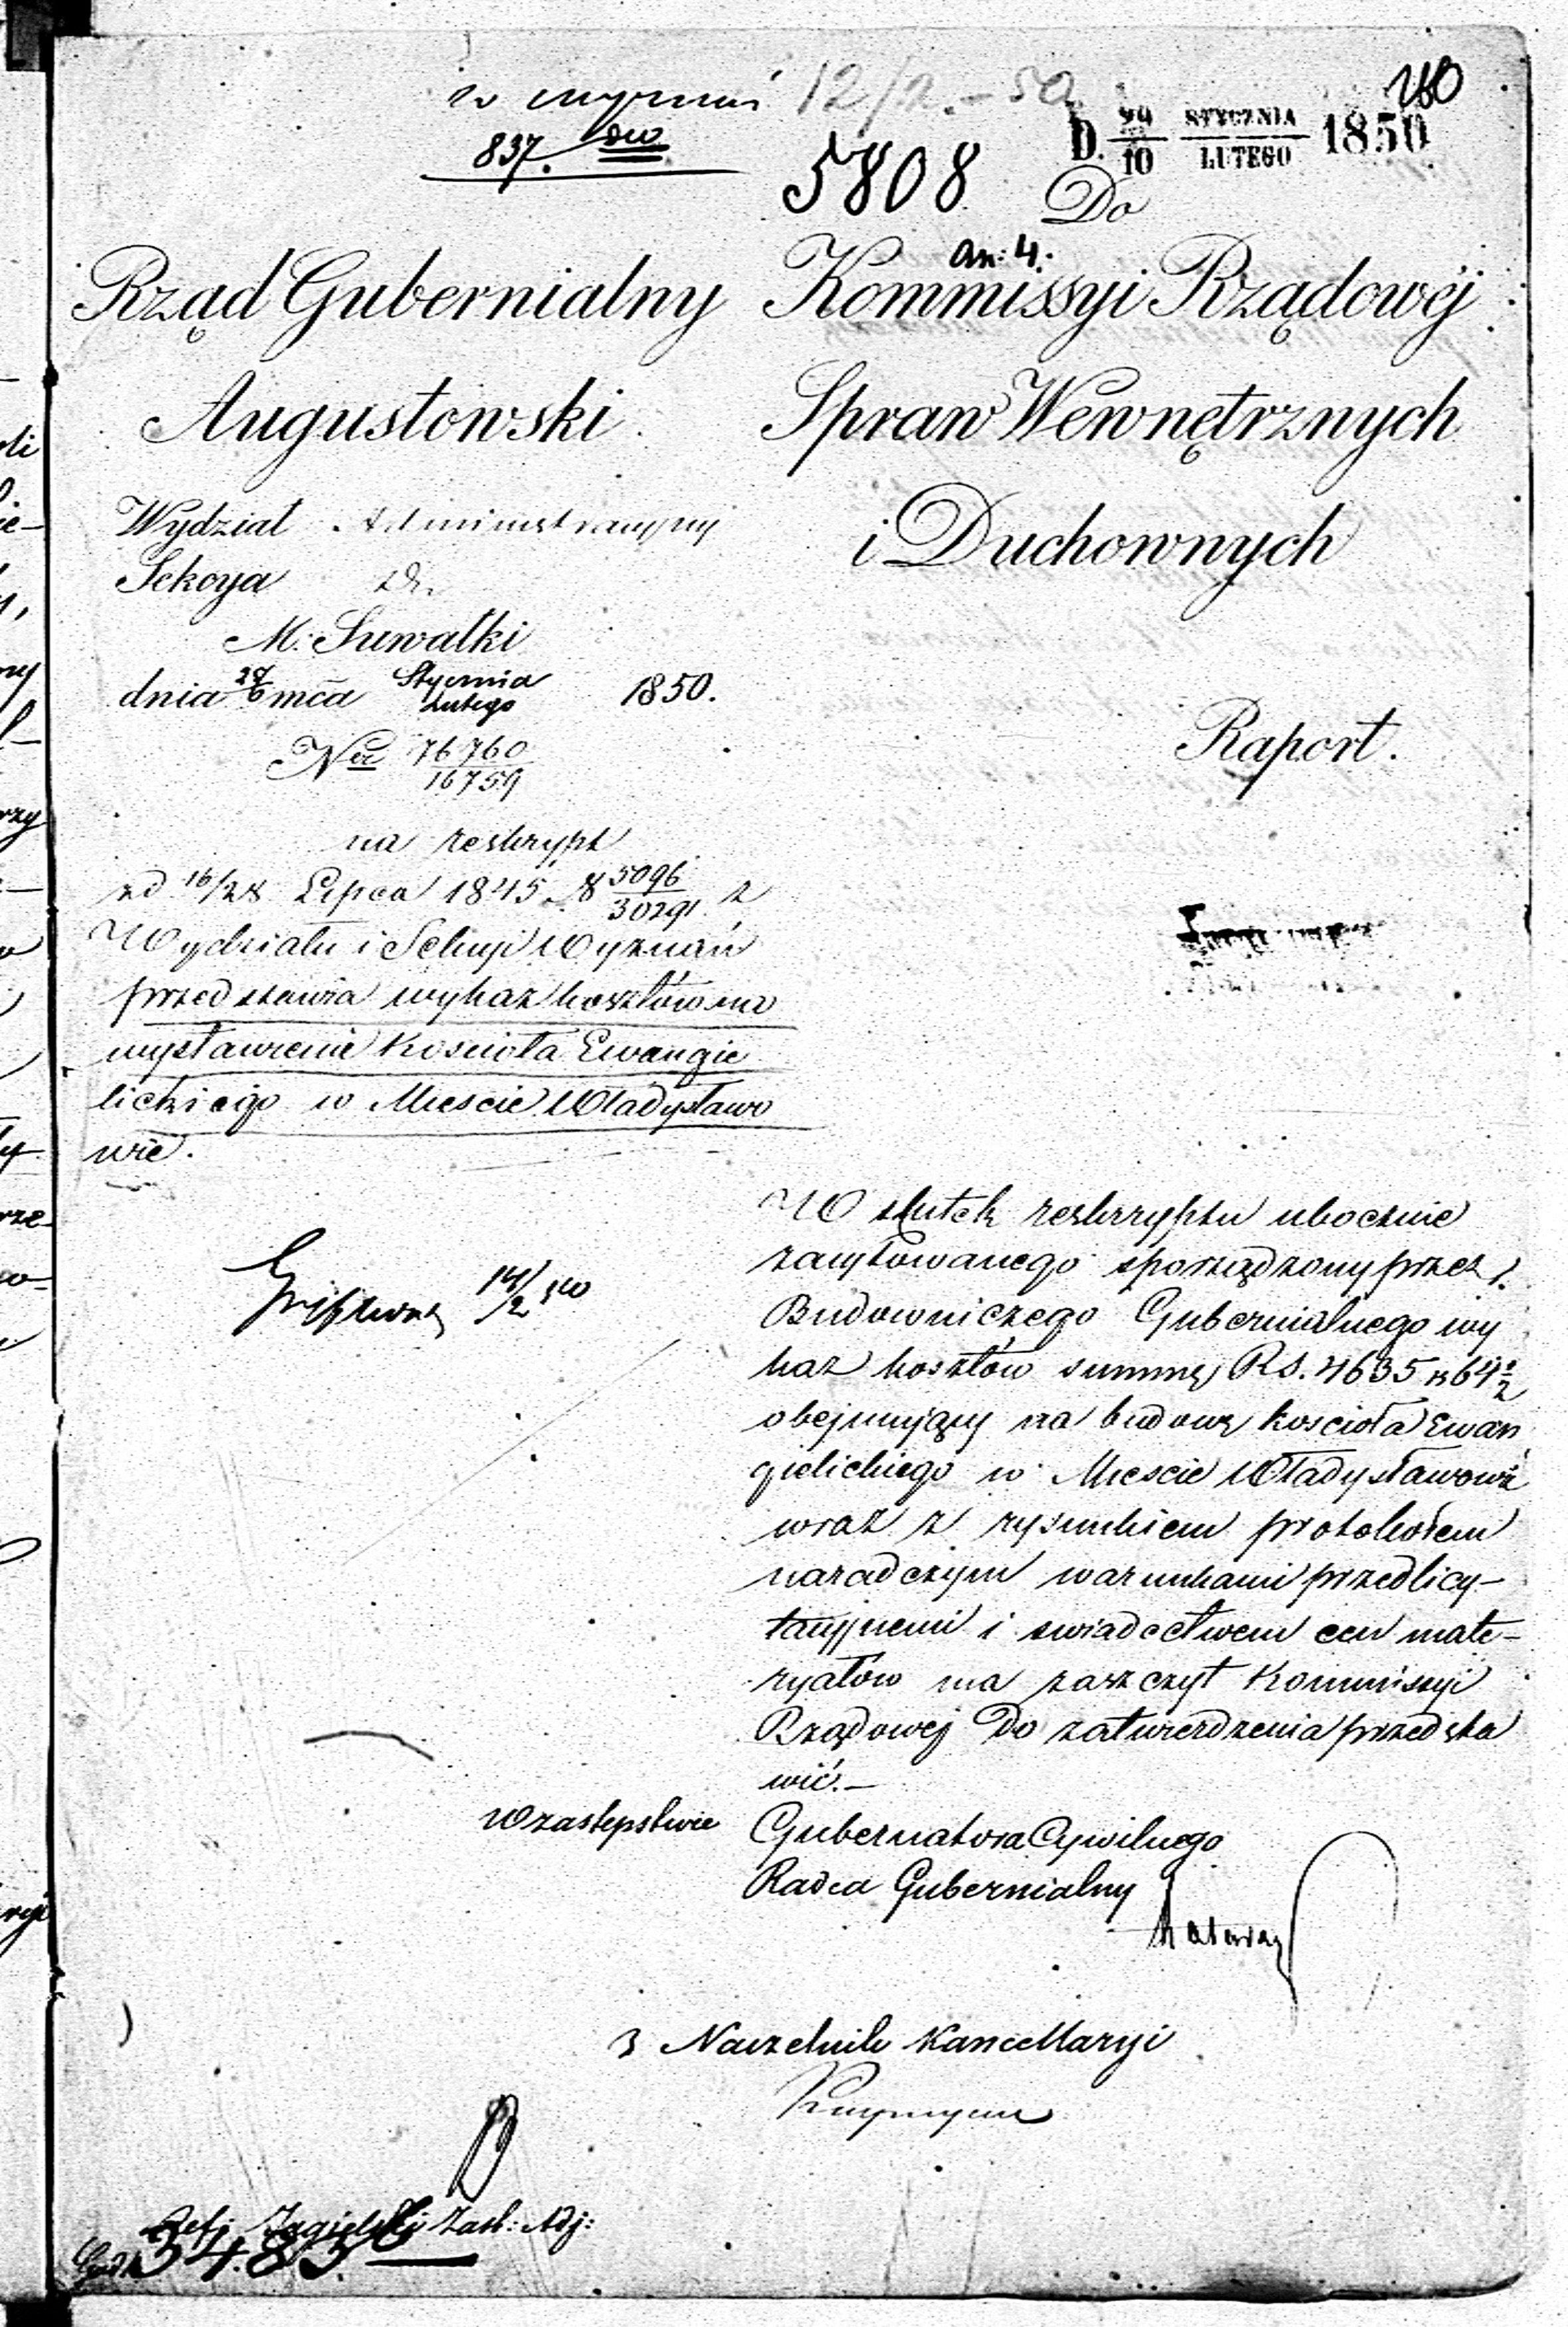 12/2.-50
180
837.
5808
D. 29/10 STYCZNIA/LUTEGO 1850
Do
an: 4.
Rząd Gubernialny
Augustowski.
Kommissyi Rządowéj
Spraw Wewnętrznych
i Duchownych
Wydział Administracyjny
Sekcya
M. Suwałki
dnia mca Stycznia/Lutego 1850.
Nr 76760/16759
na reskrypt
od 16/28 Lipca 1845 N 5096/30291 z
Wydziału i Sekcyi Wyznań
przedstawia wykaz kosztów na
wystawienie Kościoła Ewangie
lickiego w Mieście Władysławo
wie.
Raport.
W skutek reskryptu ubocznie
zacytowanego sporządzony przez
Budowniczego Gubernialnego wy
kaz kosztów summę Rs. 4635 k 64½
obejmujący na budowę kościoła Ewan
gielickiego w Mieście Władysławowie
wraz z rysunkiem protokołem
naradczym warunkami przedlicy-
tacyjnemi i swiadectwem cen mate-
ryałów ma zaszczyt Kommissyi
Rządowej do zatwierdzenia przedsta
wić.-
14/2 50
W zastępstwie Gubernatora Cywilnego
Radca Gubernialny
Naczelnik Kancellaryi
Jagielski Zast: Adj: